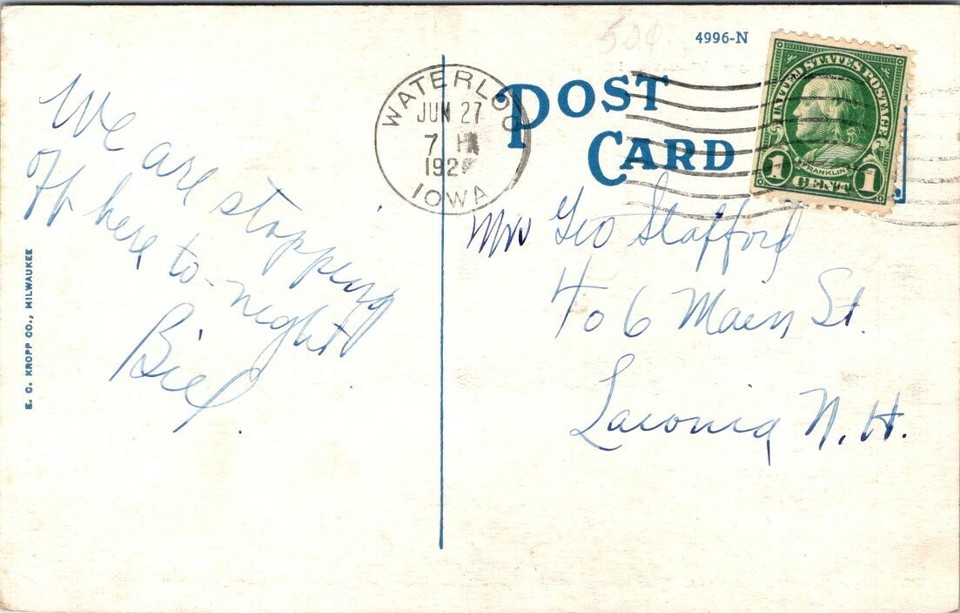 50¢
4996-N
POST
CARD
WATERLOO
JUN 27
7 PM
192
IOWA
UNITED STATES POSTAGE
FRANKLIN
1 CENT 1
We are stopping
off here to-night
Biel.
Mrs Geo Stafford
406 Main St.
Laconia N.H.
E. C. KROPP CO., MILWAUKEE